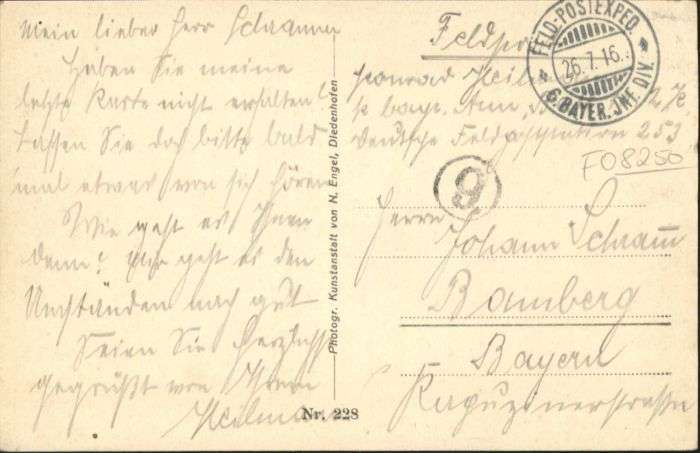 Mein lieber Herr Schramm
Haben Sie meine
letzte Karte nicht erhalten?
Lassen Sie doch bitte bald
mal etwas von sich hören
Wie geht es Ihnen
denn? Mir geht es den
Umständen nach gut
Seien Sie herzlichst
gegrüßt von Ihrem
Heilm
Photogr. Kunstanstalt von N. Engel, Diedenhofen
Nr. 228
Feldpo
FELD-POSTEXPED.
26.7.16.
6. BAYER. INF. DIV.
Konrad Heilm
k. bayr.
deutsche Feldpoststation 253
FO8250
9
Herrn
Johann Schramm
Bamberg
Bayern
Kapuzinerstraße